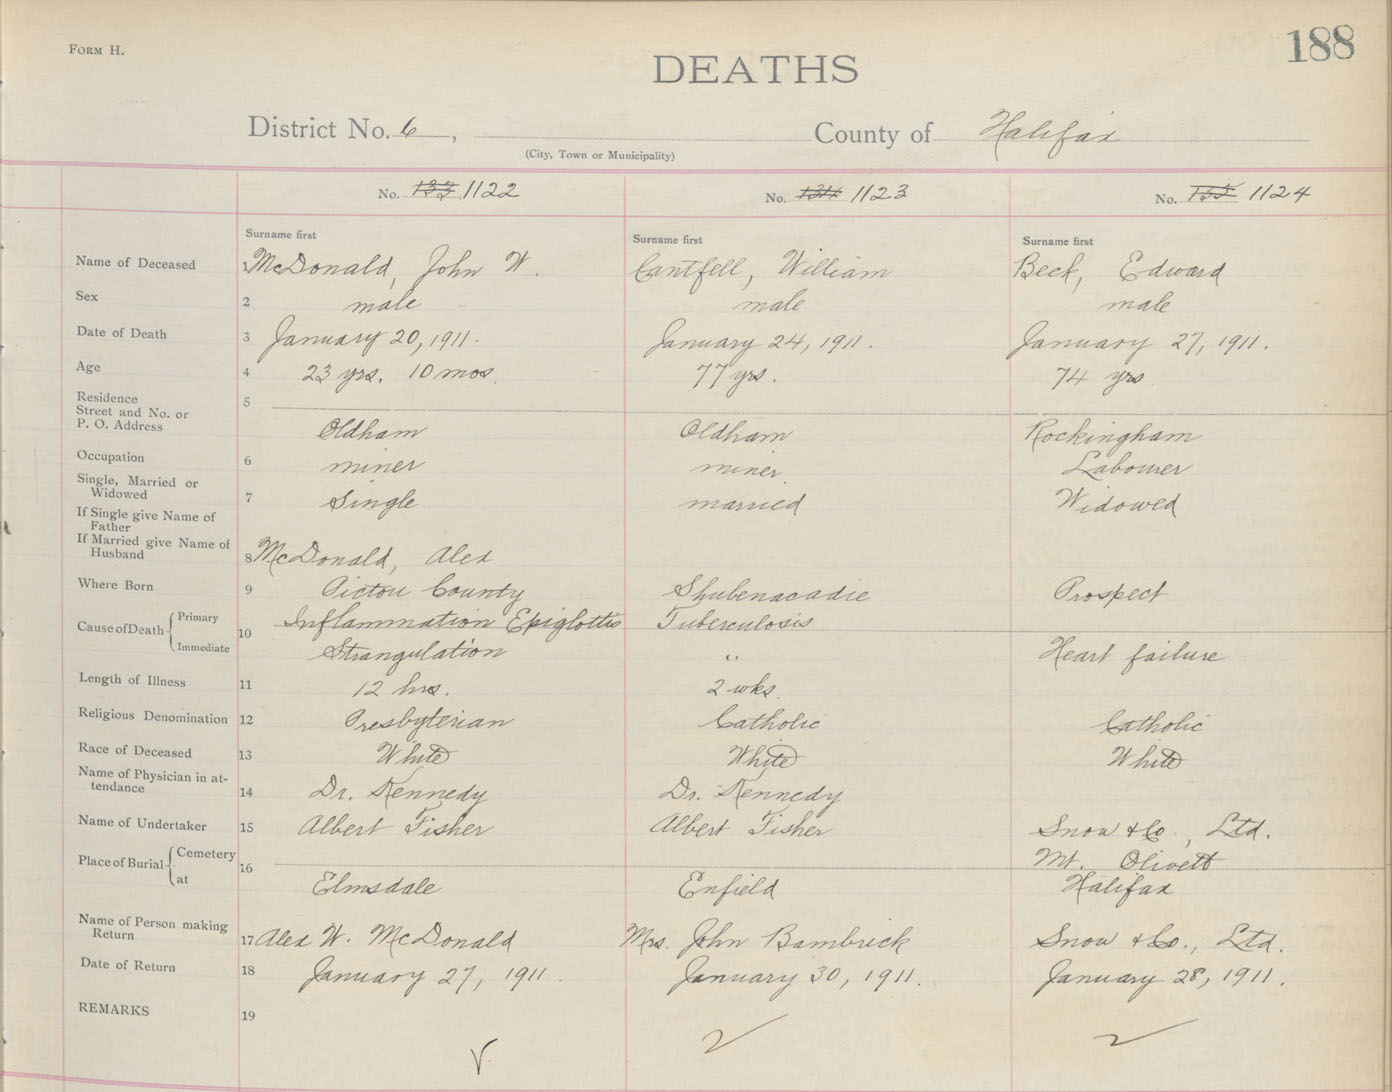 188
FORM H.
DEATHS
District No. 6, County of Halifax
(City, Town or Municipality)
No. 133 1122 No. 134 1123 No. 135 1124
Surname first Surname first Surname first
Name of Deceased 1 McDonald, John W. Cantfell, William Beck, Edward
Sex 2 male male male
Date of Death 3 January 20, 1911. January 24, 1911. January 27, 1911.
Age 4 23 yrs. 10 mos. 77 yrs. 74 yrs
Residence 5
Street and No. or
P. O. Address Oldham Oldham Rockingham
Occupation 6 miner miner Labourer
Single, Married or
Widowed 7 Single married Widowed
If Single give Name of
Father
If Married give Name of
Husband 8 McDonald, Alex
Where Born 9 Pictou County Shubenacadie Prospect
Cause of Death 10 Primary Inflammation Epiglottis Tuberculosis
Immediate Strangulation " Heart failure
Length of Illness 11 12 hrs. 2 wks.
Religious Denomination 12 Presbyterian Catholic Catholic
Race of Deceased 13 White White White
Name of Physician in at-
tendance 14 Dr. Kennedy Dr. Kennedy
Name of Undertaker 15 Albert Fisher Albert Fisher Snow & Co., Ltd.
Place of Burial 16 Cemetery Mt. Olivett
at Elmsdale Enfield Halifax
Name of Person making
Return 17 Alex W. McDonald Mrs. John Bambrick Snow & Co., Ltd.
Date of Return 18 January 27, 1911. January 30, 1911. January 28, 1911.
REMARKS 19